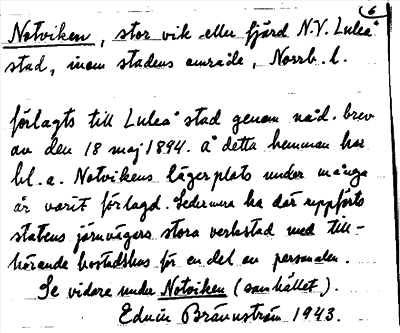 6
Notviken, stor vik eller fjärd N.V. Luleå
stad, inom stadens område, Norrb. l.
förlagts till Luleå stad genom nåd. brev
av den 18 maj 1894. Å detta hemman har
bl. a. Notvikens lägerplats under många
år varit förlagd. Sedermera ha där uppförts
statens järnvägars stora verkstad med till-
hörande bostadshus för en del av personalen.
Se vidare under Notviken (samhället).
Edvin Brännström 1943.